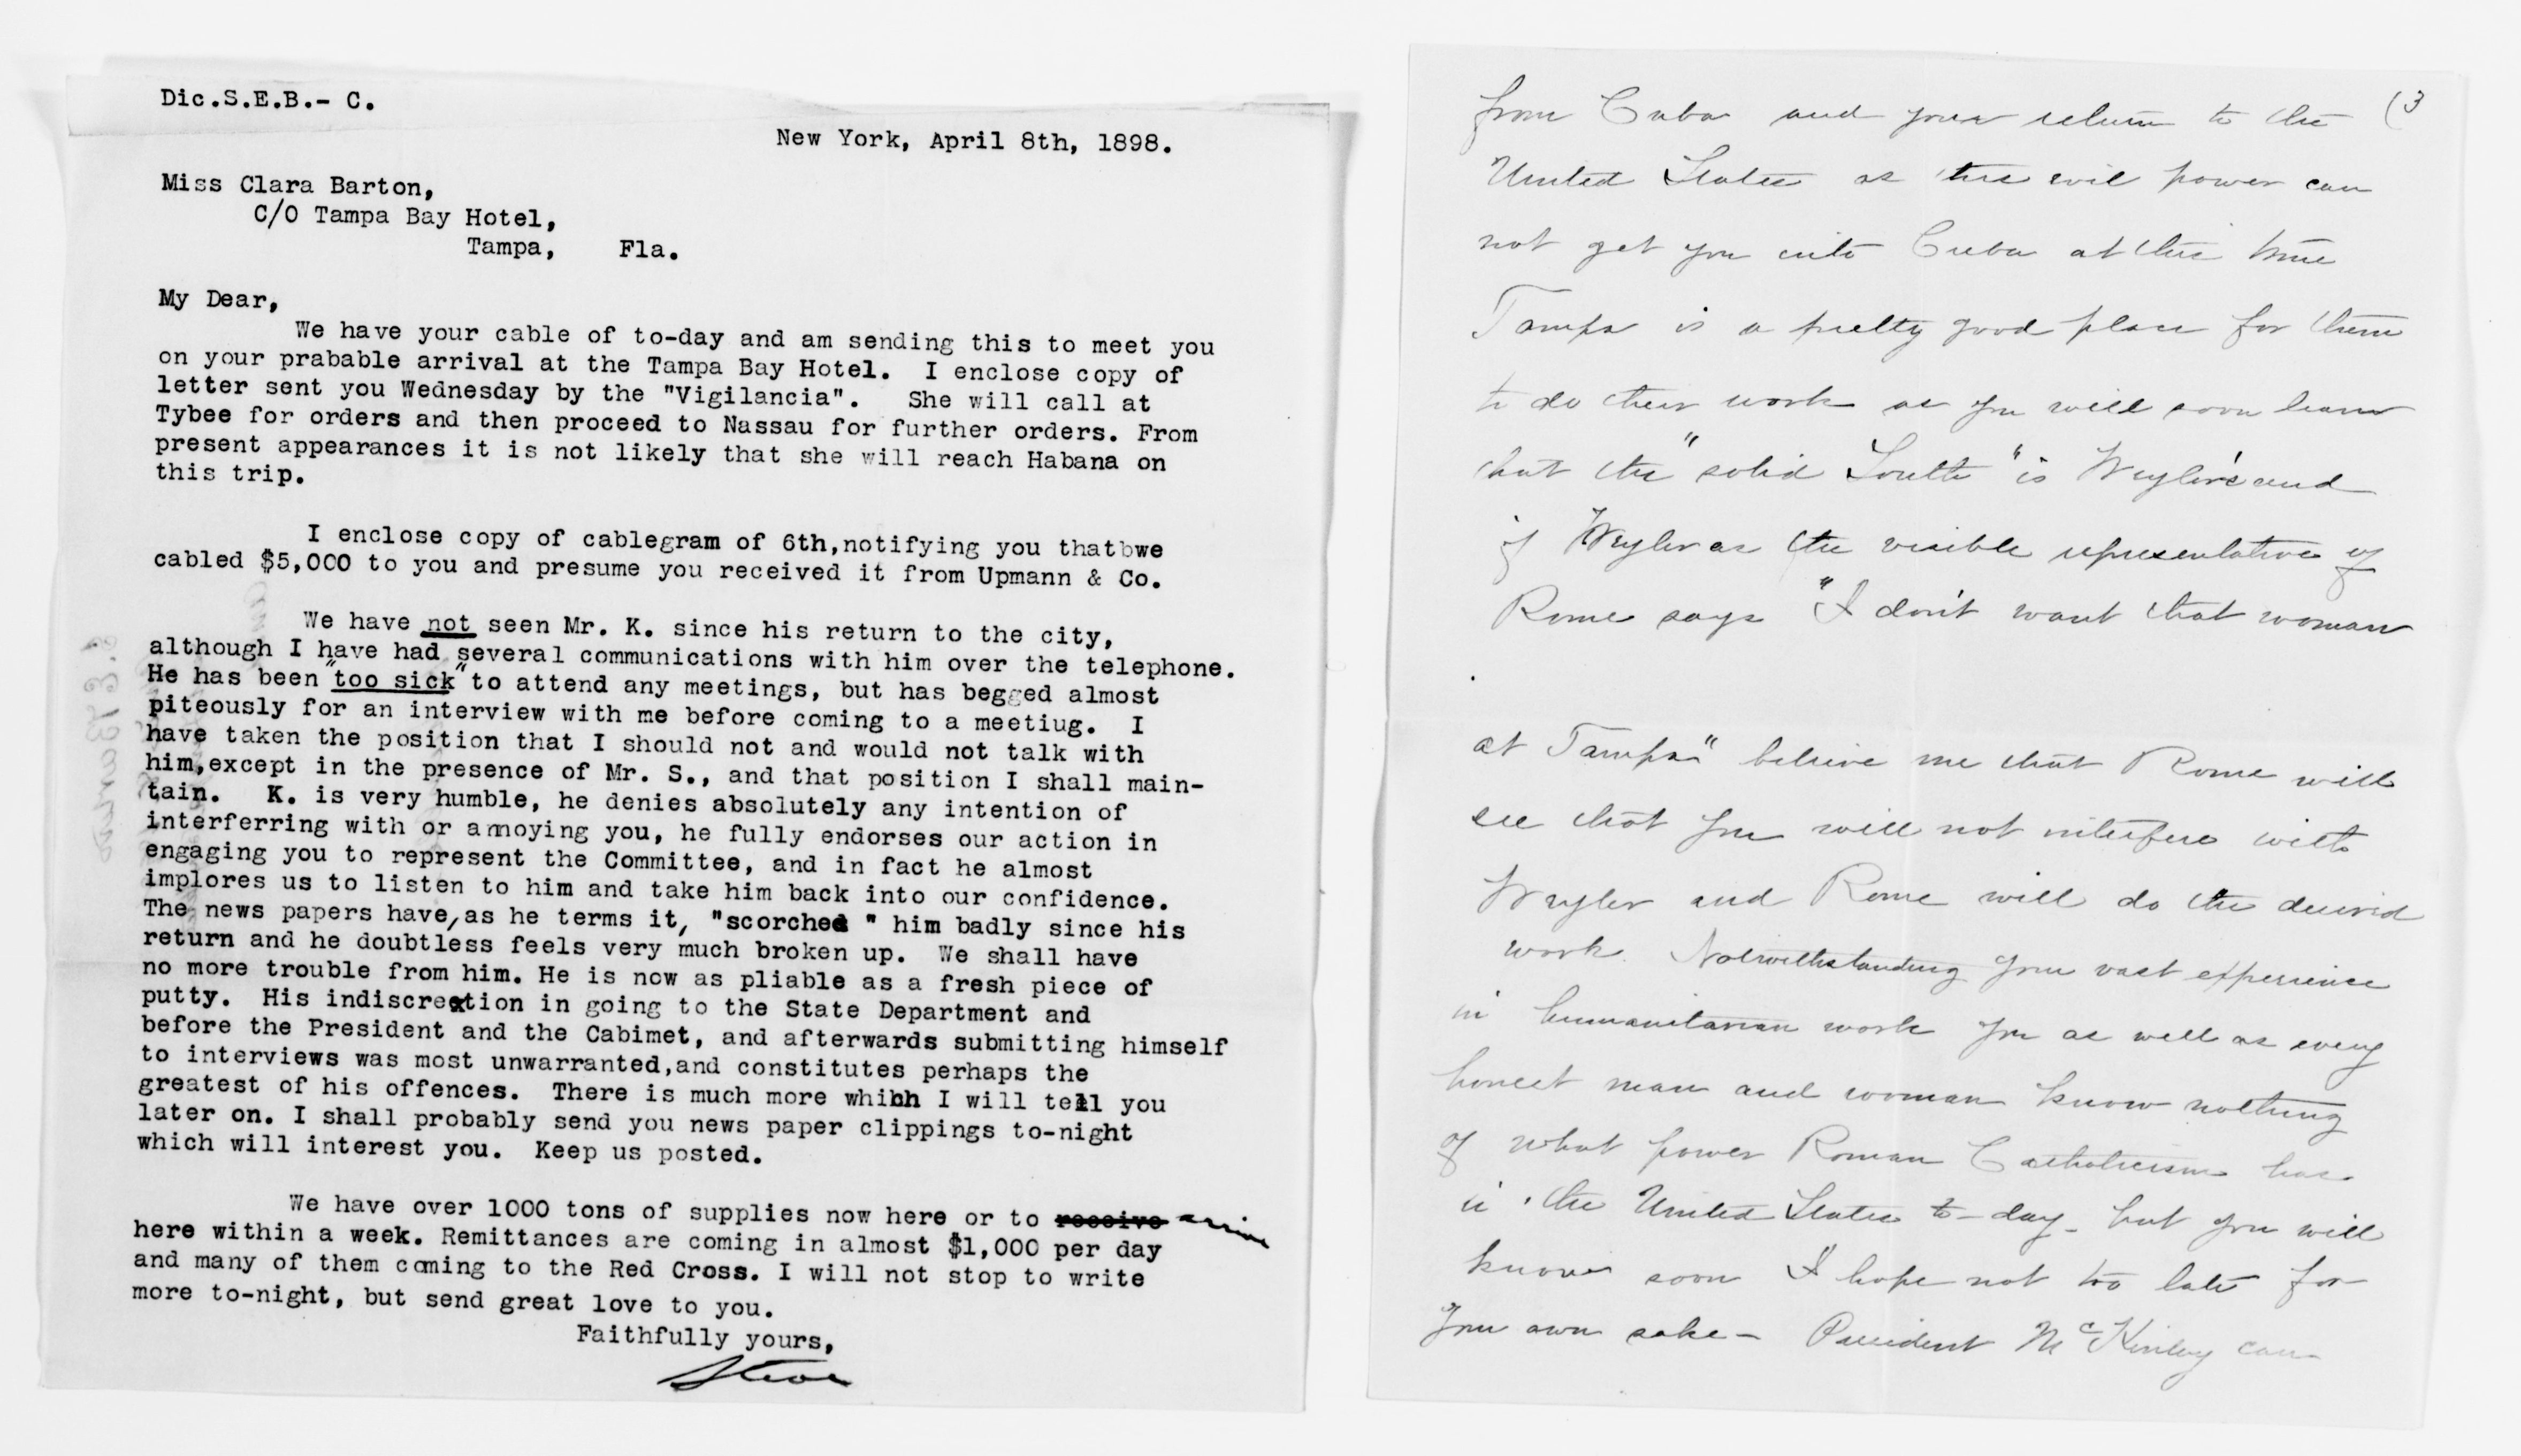 Dic.S.E.B.- C.
New York, April 8th, 1898.
Miss Clara Barton,
C/O Tampa Bay Hotel,
Tampa, Fla.
My Dear,
We have your cable of to-day and am sending this to meet you
on your prabable arrival at the Tampa Bay Hotel. I enclose copy of
letter sent you Wednesday by the "Vigilancia". She will call at
Tybee for orders and then proceed to Nassau for further orders. From
present appearances it is not likely that she will reach Habana on
this trip.
I enclose copy of cablegram of 6th,notifying you thatbwe
cabled $5,000 to you and presume you received it from Upmann & Co.
We have not seen Mr. K. since his return to the city,
although I have had several communications with him over the telephone.
He has been "too sick" to attend any meetings, but has begged almost
piteously for an interview with me before coming to a meetiug. I
have taken the position that I should not and would not talk with
him,except in the presence of Mr. S., and that position I shall main-
tain. K. is very humble, he denies absolutely any intention of
interferring with or annoying you, he fully endorses our action in
engaging you to represent the Committee, and in fact he almost
implores us to listen to him and take him back into our confidence.
The news papers have, as he terms it, "scorched " him badly since his
return and he doubtless feels very much broken up. We shall have
no more trouble from him. He is now as pliable as a fresh piece of
putty. His indiscrextion in going to the State Department and
before the President and the Cabimet, and afterwards submitting himself
to interviews was most unwarranted,and constitutes perhaps the
greatest of his offences. There is much more whihh I will tell you
later on. I shall probably send you news paper clippings to-night
which will interest you. Keep us posted.
We have over 1000 tons of supplies now here or to receive arrive
here within a week. Remittances are coming in almost $1,000 per day
and many of them coming to the Red Cross. I will not stop to write
more to-night, but send great love to you.
Faithfully yours,
Steve
(3
from Cuba and your return to the
United States as this evil power can
not get you into Cuba at this time
Tampa is a pretty good place for them
to do their work as you will soon learn
that the "solid South" is Weyler's and
if Weyler as the visible representative of
Rome says "I don't want that woman
at Tampa" believe me that Rome will
see that you will not interfere with
Weyler and Rome will do the desired
work. Notwithstanding your vast experience
in humanitarian work you as well as every
honest man and woman know nothing
of what power Roman Catholicism has
in the United States to-day - but you will
know soon I hope not too late for
your own sake - President McKinley can